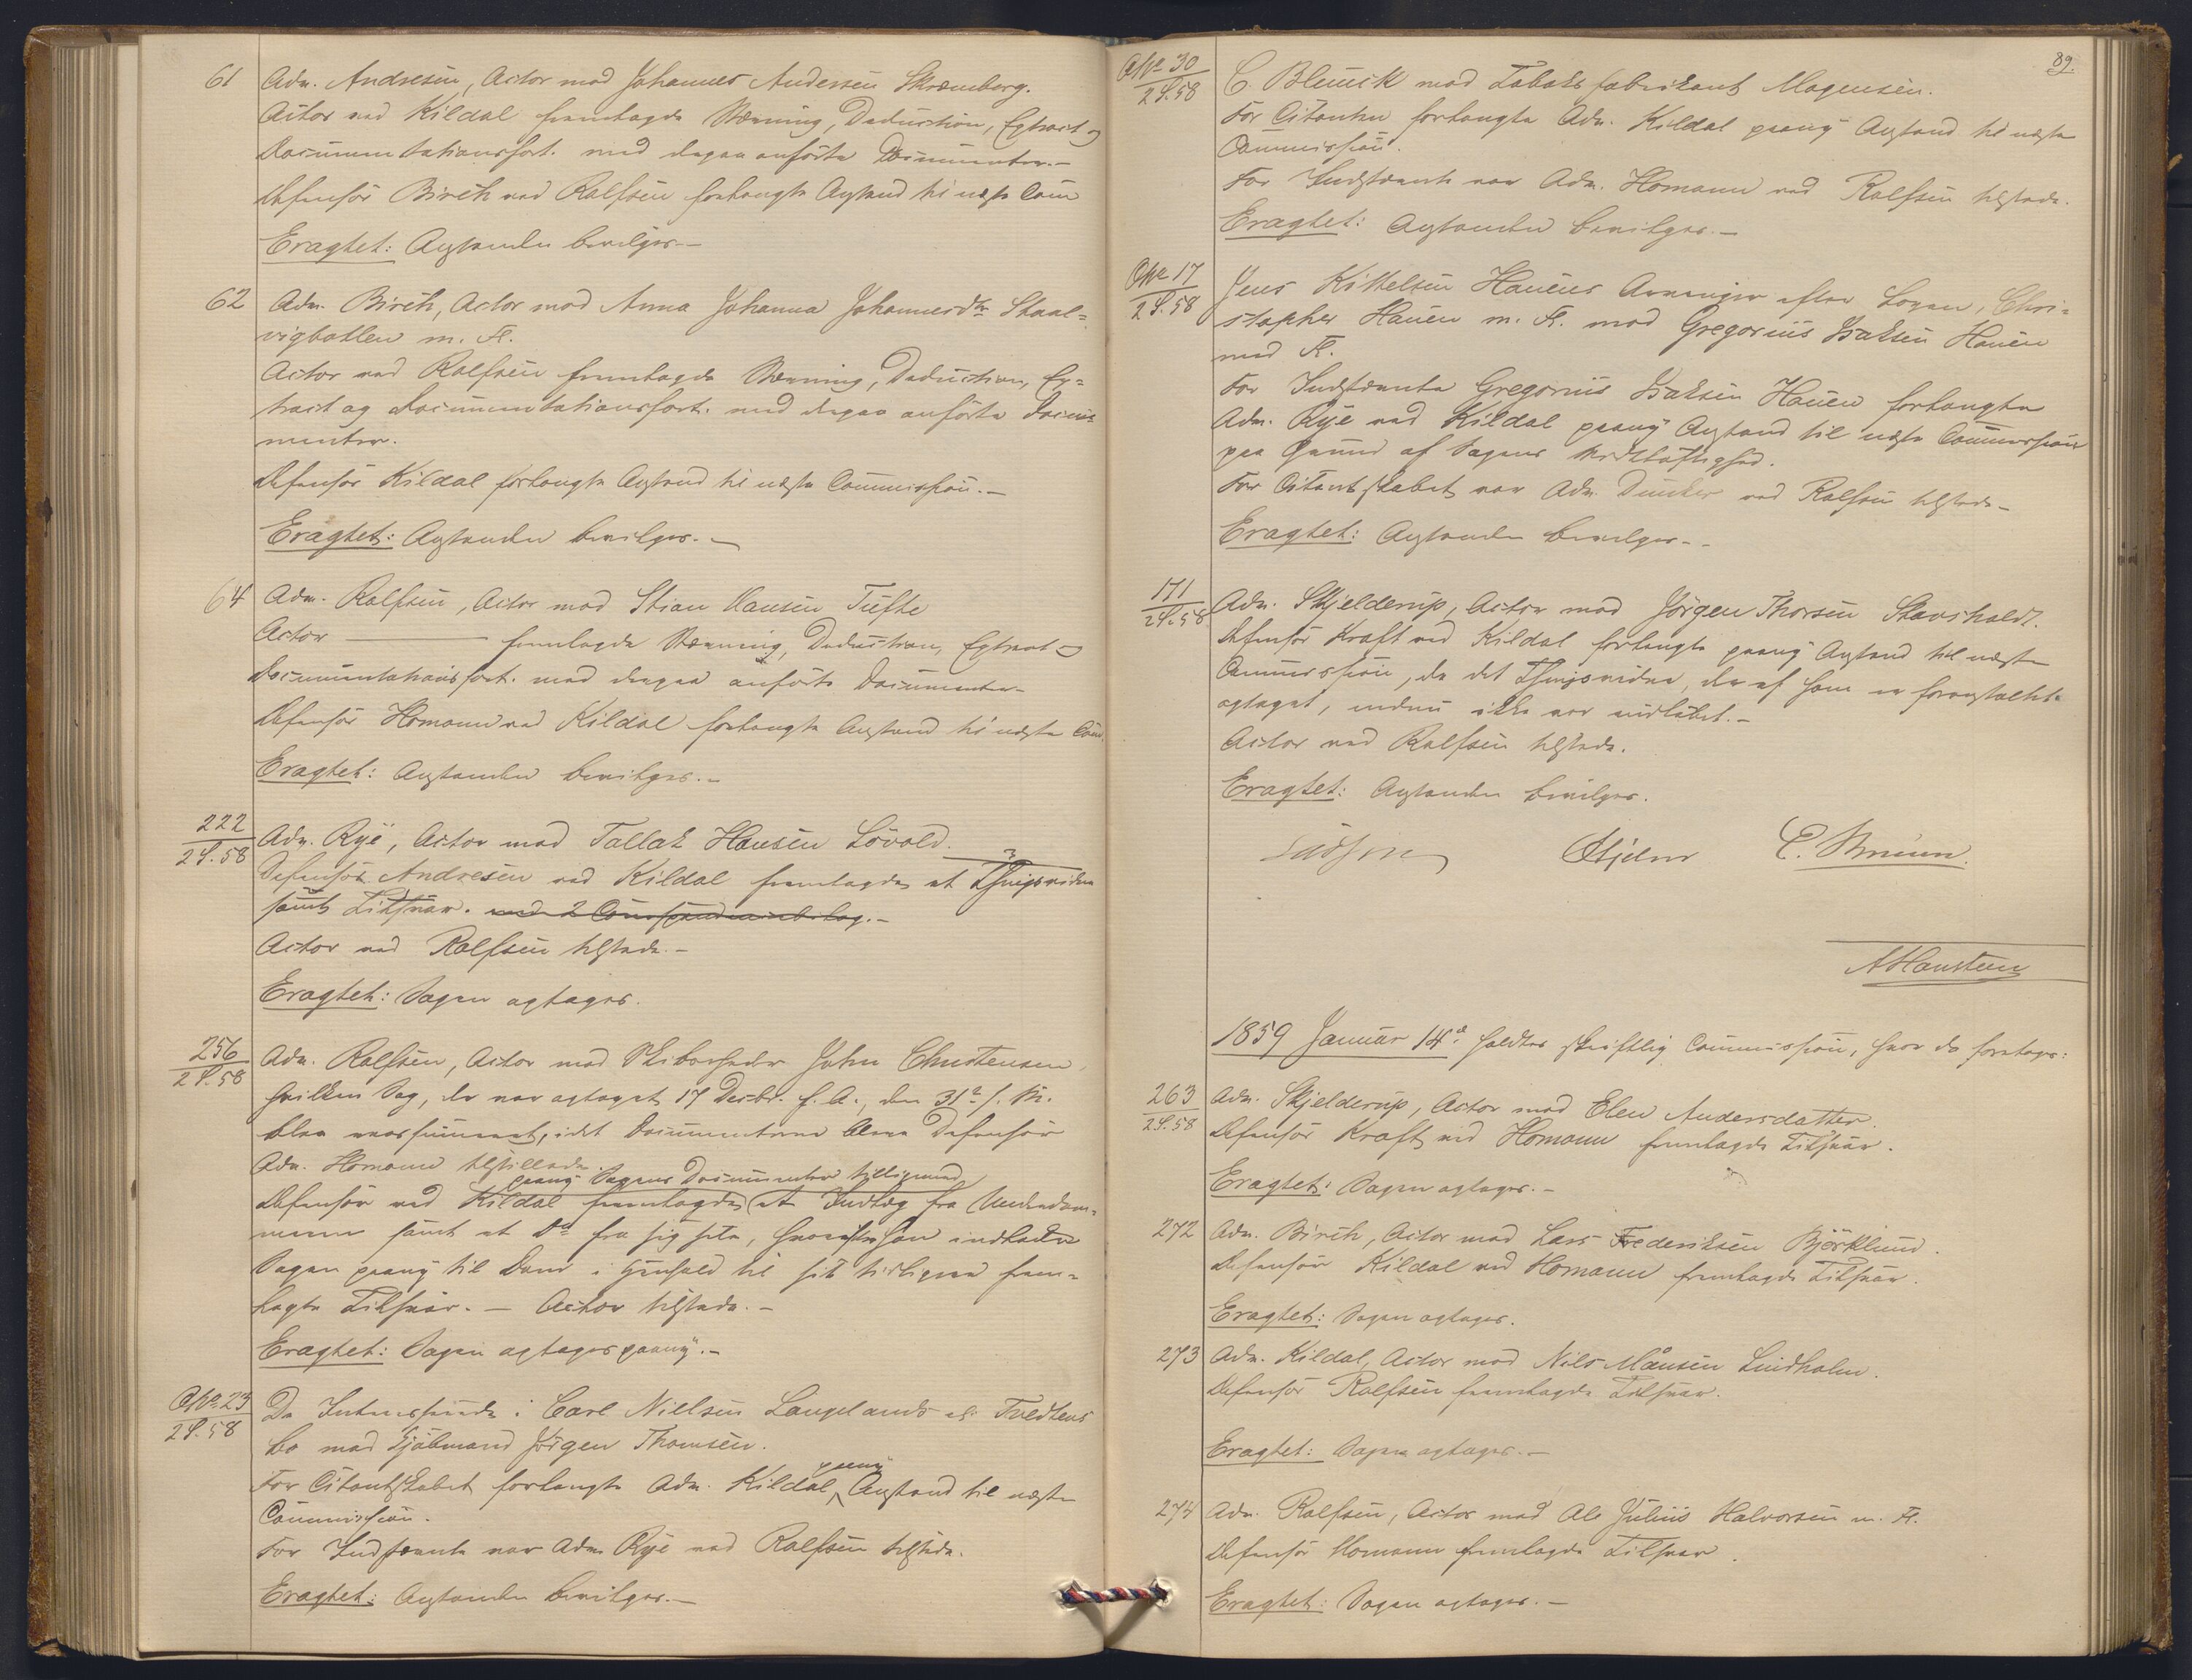 61 Adv. Andresen, Actor mod Johannes Andersen Skramberg.
Actor ved Kildal fremlagde Stævning, Deduction, Extract og
Documentationsfort. med derpaa anførte Documenter.—
Defensor Birch ved Rolfsen forlangte Anstand til næste Com
Eragtet: Anstanden bevilges.—
62 Adv. Birch, Actor mod Anna Johanna Johannesdtr. Staal=
vigbatten m. Fl.
Actor ved Rolfsen fremlagde Stævning, Deduction, Ex=
tract og Documentationsfort. med derpaa anførte Docu=
menter.
Defensor Kildal forlangte Anstand til næste Commission.—
Eragtet: Anstanden bevilges.—
64 Adv. Rolfsen, Actor mod Stian Hansen Tufte
Actor —— fremlagde Stævning, Deduction, Extract og
Documentationsfort. med derpaa anførte Documenter.
Defensor Homann ved Kildal forlangte Anstand til næste Com.
Eragtet: Anstanden bevilges.—
222
2 S. 58
Adv. Rye, Actor mod Tallak Hansen Lövold.
Defensor Andresen ved Kildal fremlagde et Thingsvidne
samt Tilsvar. med 2 Correspondancebilag.—
Actor ved Rolfsen tilstede.—
Eragtet: Sagen optages.
256
2 S. 58
Adv. Rolfsen, Actor mod Skibsrheder John Christensen,
hvilken Sag, der var optaget 17 Decbr. f. A., den 31te s. M.
blev reassumeret, idet Documenterne bleve Defensor
Adv. Homann tilstillede.
paany Sagens Documenter tilligemed
Defensor ved Kildal fremlagde et Indlæg fra
samt et Do fra sig selv, hvorefter han indlader
Sagen paany til Dom i Henhold til sit tidligere frem=
lagte Tilsvar.— Actor tilstede.—
Eragtet: Sagen optages paany.—
No 23
2 S. 58
De Interesserede i Carl Nielsen Langelands el. Tvedtens
bo mod Kjöbmand Jörgen Thomsen.
For Citantskabet forlangte Adv. Kildal paany Anstand til næste
Commission.
For Indstævnte var Adv. Rye ved Rolfsen tilstede.
Eragtet: Anstanden bevilges.—
89.
No 30
2 S. 58
C. Blunck mod Tobaksfabrikant Mogensen.
For Citanten forlangte Adv. Kildal paany Anstand til næste
Commission.
For Indstævnte var Adv. Homann ved Rolfsen tilstede.
Eragtet: Anstanden bevilges.—
No 17
2 S. 58
Jens Kittelsen Hauens Arvinger efter Loven, Chri=
stopher Hauen m. Fl. mod Gregorius Isaksen Hauen
med Fl.
For Indstævnte Gregorius Isaksen Hauen forlangte
Adv. Rye ved Kildal paany Anstand til næste Commission
paa Grund af Sagens Vidtløftighed.
For Citantskabet var Adv. Duncker ved Rolfsen tilstede.—
Eragtet: Anstanden bevilges.—
171
2 S. 58
Adv. Skjelderup, Actor mod Jörgen Thorsen Stavsholdt.
Defensor Kraft ved Kildal forlangte paany Anstand til næste
Commission, da det Thingsvidne, der af ham er foranstaltet
optaget, endnu ikke var indløbet.—
Actor ved Rolfsen tilstede.
Eragtet: Anstanden bevilges.
Hjelm
AHansteen
1859 Januar 14de holdtes skriftlig Commission, hvor da foretages:
263
2 S. 58
Adv. Skjelderup, Actor mod Elen Andersdatter.
Defensor Kraft ved Homann fremlagde Tilsvar.
Eragtet: Sagen optages.—
272 Adv. Birch, Actor mod Lars Frederiksen Björklund.
Defensor Kildal ved Homann fremlagde Tilsvar.
Eragtet: Sagen optages.
273 Adv. Kildal, Actor mod Nils Månsen Lindholm.
Defensor Rolfsen fremlagde Tilsvar.
Eragtet: Sagen optages.—
274 Adv. Rolfsen, Actor mod Ole Julius Halvorsen m. Fl.
Defensor Homann fremlagde Tilsvar.
Eragtet: Sagen optages.—